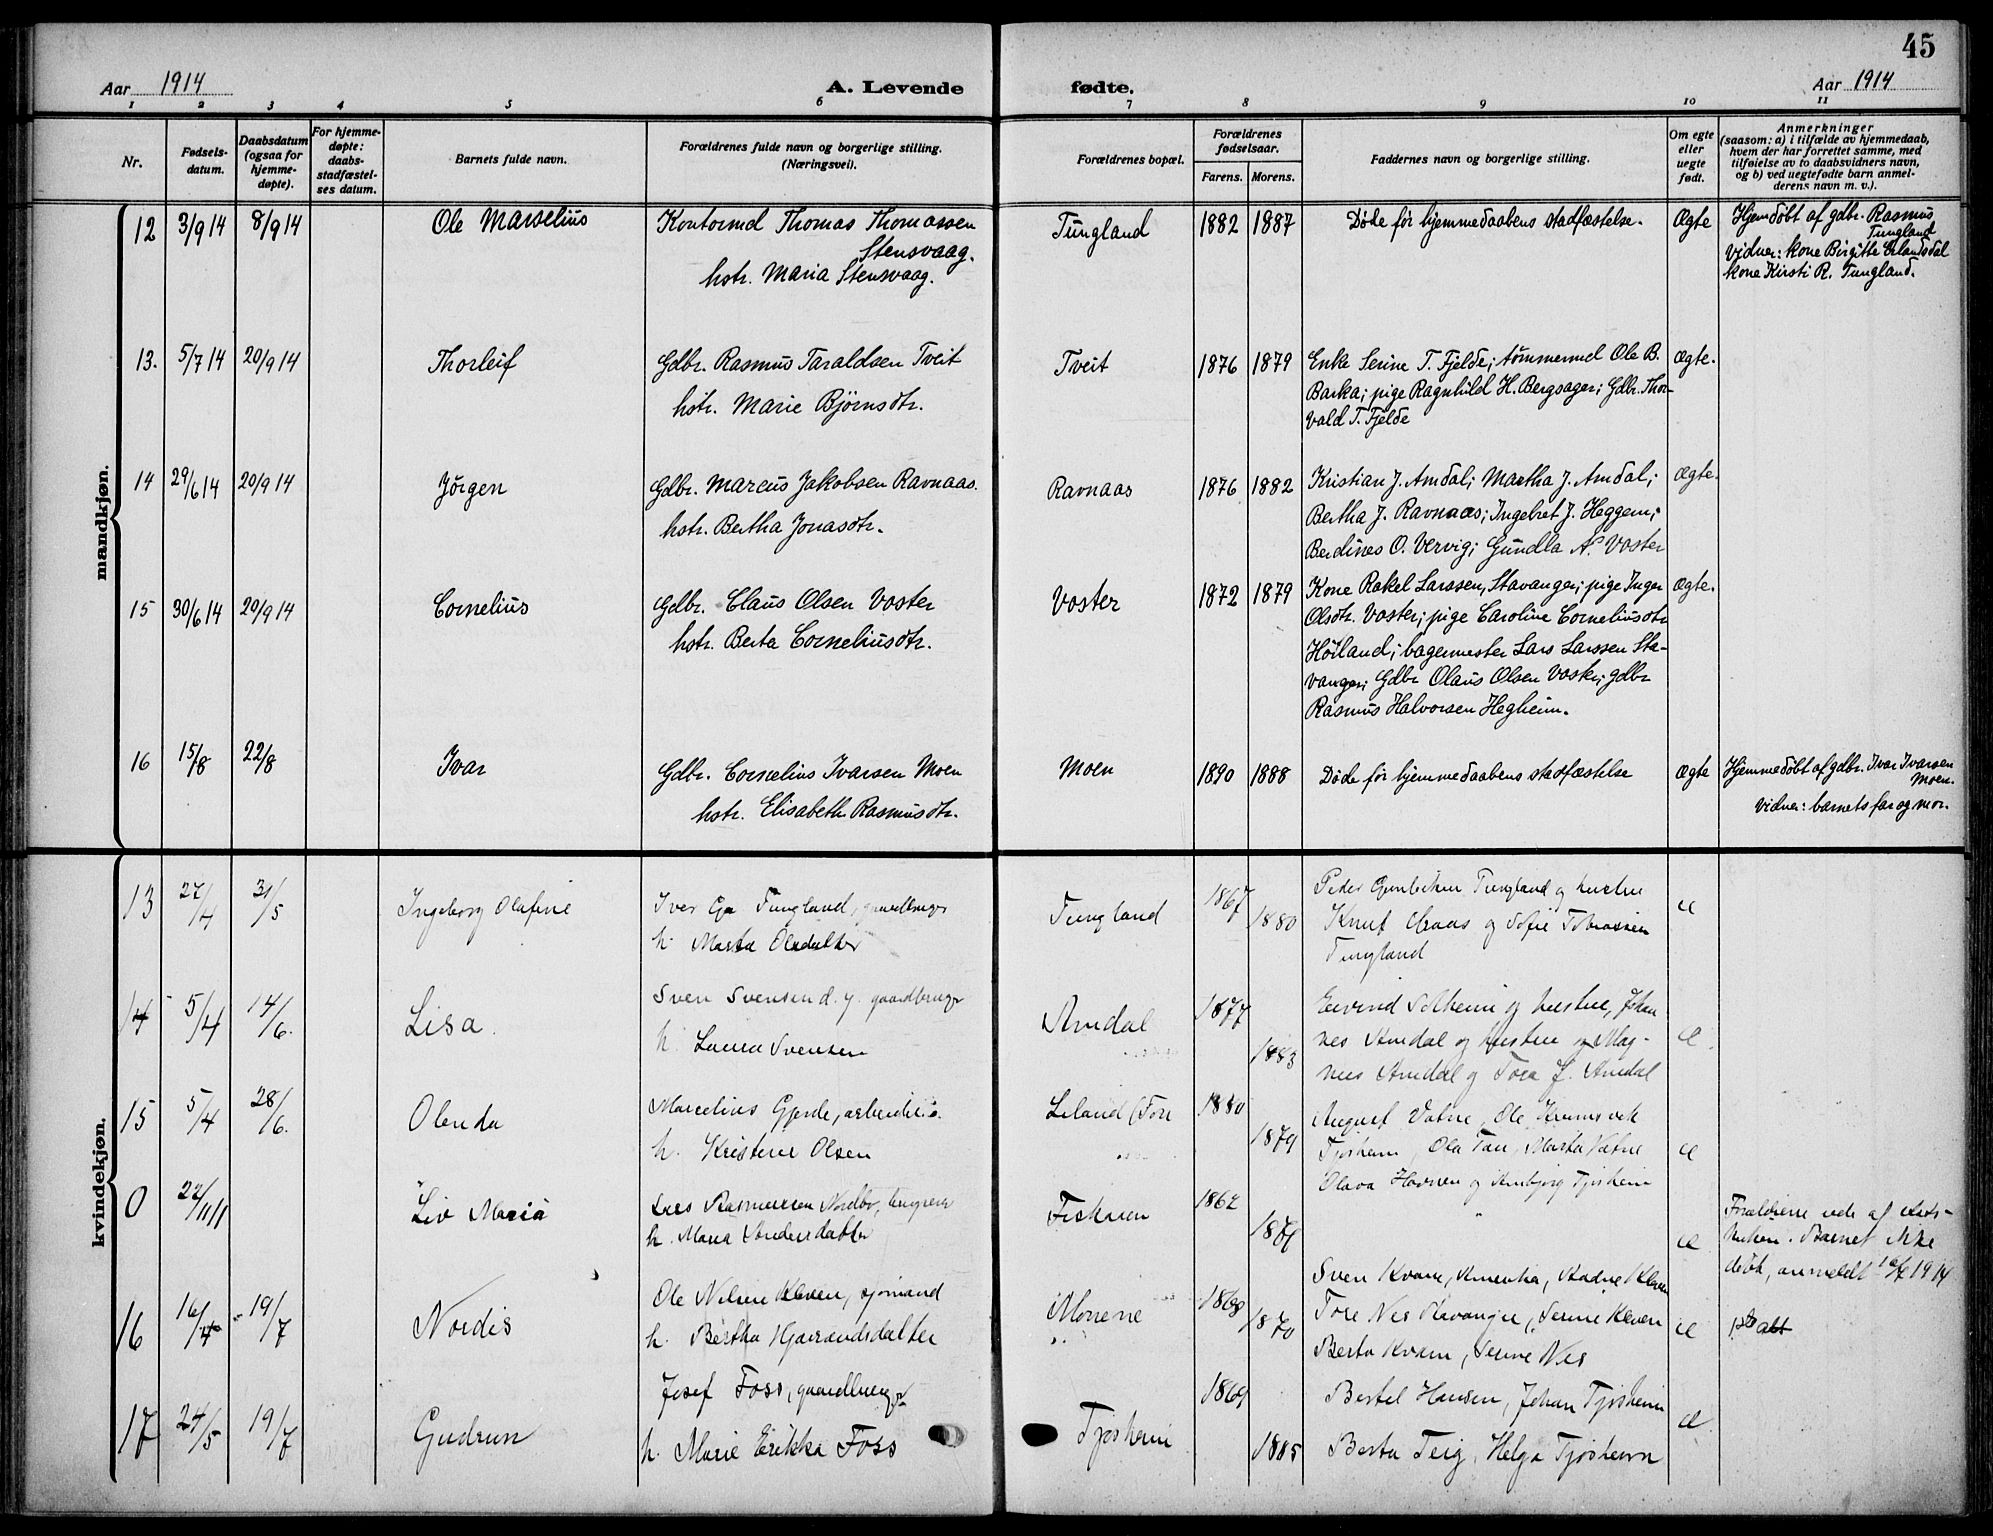 45
Aar 1914 A. Levende fødte. Aar 1914
1 2 3 4 5 6 7 8 9 10 11
Nr.
Fødsels-
datum.
Daabsdatum
(ogsaa for
hjemme-
døpte).
For hjemme-
døpte:
daabs-
stadfæstel-
ses datum.
Barnets fulde navn.
Forældrenes fulde navn og borgerlige stilling.
(Næringsvei).
Forældrenes bopæl.
Forældrenes
fødselsaar.
Farens. Morens.
Faddernes navn og borgerlige stilling.
Om egte
eller
uegte
født.
Anmerkninger
(saasom: a) i tilfælde av hjemmedaab,
hvem der har forrettet samme, med
tilføielse av to daabsvidners navn,
og b) ved uegtefødte barn anmel-
derens navn m. v.).
mandkjøn.
12 3/9 14 8/9 14 Ole Marselius
Kontormd Thomas Thomassen
Stensvaag.
hstr. Maria Stensvaag.
Tungland 1882 1887
Døde før hjemmedaabens stadfæstelse. Ægte
Hjemdöbt af gdbr. Rasmus
Tungland
Vidner: kone Birgitte Erlandsdal
kone Kirsti R. Tungland.
13. 5/7 14 20/9 14 Thorleif
Gdbr. Rasmus Taraldsen Tveit
hstr. Marie Björnsdtr.
Tveit 1876 1879
Enke Serine T. Fjelde; tömmermd Ole B.
Barka; pige Ragnhild H. Bergsager; Gdbr. Thor-
vald T. Fjelde
Ægte.
14 29/6 14 20/9 14 Jörgen
Gdbr. Marcus Jakobsen Ravnaas.
hstr. Bertha Jonasdtr.
Ravnaas 1876 1882
Kristian J. Amdal; Martha J. Amdal;
Bertha J. Ravnaas; Ingebret J. Heggem;
Berdines O. Vervig; Gundla A. Voster
Ægte.
15 30/6 14 20/9 14 Cornelius
Gdbr. Claus Olsen Voster
hstr. Berta Corneliusdtr.
Voster 1872 1879
Kone Rakel Larssen, Stavanger; pige Inger
Olsdtr. Voster; pige Caroline Corneliusdtr
Höiland; bagermester Lars Larssen Sta-
vanger; Gdbr Olaus Olsen Voster; gdbr
Rasmus Halvorsen Hegheim.
Ægte.
16 15/8 22/8 Ivar
Gdbr. Cornelius Ivarsen Moen
hstr. Elisabeth Rasmusdtr.
Moen 1890 1888
Døde før hjemmedaabens stadfæstelse Ægte
Hjemmedöbt af gdbr. Ivar Ivarsen
Moen.
Vidner: barnets far og mor.
kvindekjøn.
13 27/4 31/5 Ingeborg Olafine
Iver Tungland, gaardbruger
h. Marta Olsdatter
Tungland 1867 1880
Peder Tungland og hustru
Knut og Sofie
Tungland
14 5/4 14/6. Lisa.
Sven Svensen d. y. gaardbruger
h. Laura Svensen
Amdal 1877 1883
Eivind Solheim og hustru, Johan
nes Amdal og hustru og Mag-
nus Amdal og Tora J. Amdal
15 5/4 28/6. Olenda
Marcelius Gjerde, arbeider
h. Kristine Olsen
1880 1879
August Vatne, Ole
Tjøsheim, Ola Tau, Marta Vatne
Olava og Ambjörg Tjösheim
0 22/11 11 Liv Maria
Lars Rasmussen Nordbø,
h. Maria Andersdatter
1862
Forældrene ude af stats-
kirken. Barnet ikke
döbt, anmeldt
16 19/7 Nordis
Ole Nilsen Kleven, sjömand
h. Bertha
Monene 1870
Sven Kvam, Amentha, Kleven
Tore Nes Stavanger, Serine Kleven
Berta Kvam, Serine Nes
17 24/5 19/7 Gudrun
Josef Foss, gaardbruger
h. Marie Erikka Foss
Tjøsheim 1869 1885
Bertel Hansen, Johan Tjøsheim
Berta Teig, Helga Tjøsheim